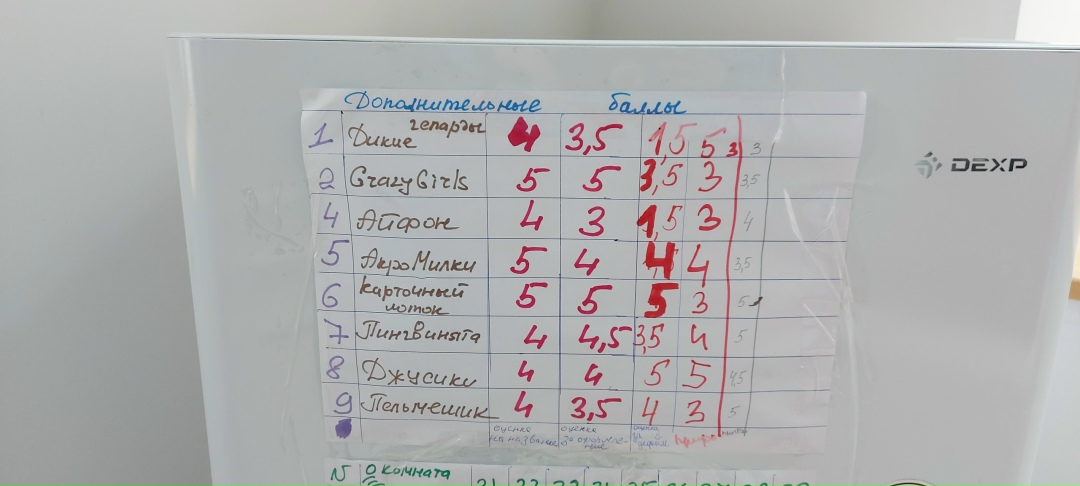 Дополнительные баллы
1 Дикие гепарды 4 3,5 1,5 5 3 3
DEXP
2 CrazyGirls 5 5 3,5 3 3,5
4 Айфон 4 3 1,5 3 4
5 АкроМилки 5 4 4 4 3,5
6 Карточный лоток 5 5 5 3 5
7 Пингвинята 4 4,5 3,5 4 5
8 Джусики 4 4 5 5 4,5
9 Пельмешик 4 3,5 4 3 5
оценка на название оценка за оформление оценка за
N О комната